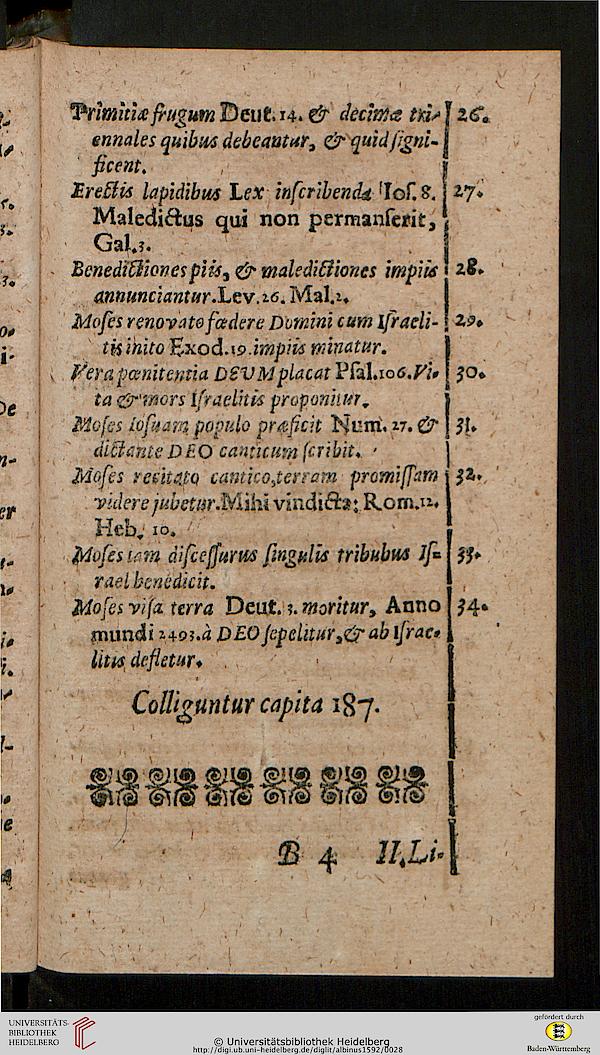 Primitiæ frugum Deut. 14. & decimæ tri- 26.
ennales quibus debeantur, & quid signi-
ficent.
Erectis lapidibus Lex inscribenda Ios. 8. 27.
Maledictus qui non permanserit,
Gal. 3.
Benedictiones piis, & maledictiones impiis 28.
annunciantur. Lev. 26. Mal. 2.
Moses renovato fœdere Domini cum Israeli- 29.
tis inito Exod. 19. impiis minatur.
Vera pœnitentia DEUM placat Psal. 106. Vi- 30.
ta & mors Israelitis proponitur.
Moses Iosuam populo præficit Num. 27. & 31.
dictante DEO canticum scribit.
Moses recitato cantico, terram promissam 32.
videre jubetur. Mihi vindicta: Rom. 12.
Heb. 10.
Moses iam discessurus singulis tribubus Is= 33.
rael benedicit.
Moses visa terra Deut. 3. moritur, Anno 34.
mundi 2493. à DEO sepelitur, & ab Israe-
litis defletur.
Colliguntur capita 187.
B 4 II. Li-
UNIVERSITÄTS-
BIBLIOTHEK
HEIDELBERG
© Universitätsbibliothek Heidelberg
http://digi.ub.uni-heidelberg.de/diglit/albinus1592/0028
gefördert durch
Baden-Württemberg